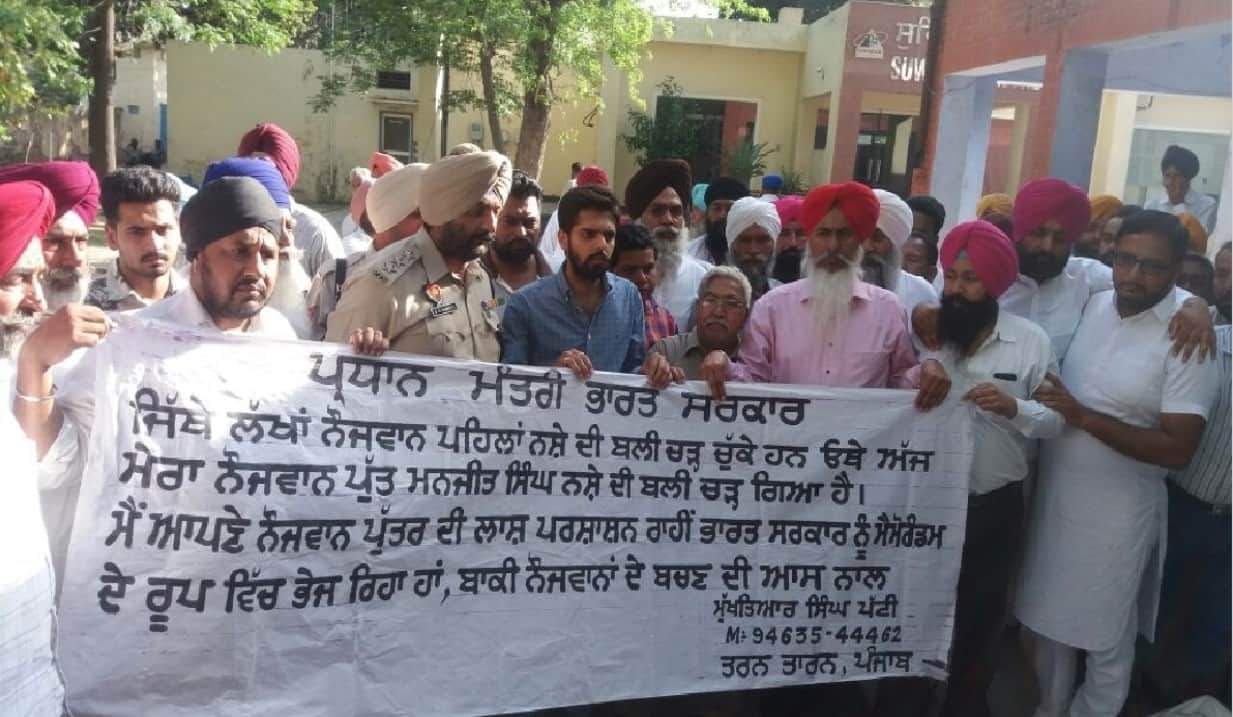 ਸੁਵਿ
SUW
ਪ੍ਰਧਾਨ ਮੰਤਰੀ ਭਾਰਤ ਸਰਕਾਰ
ਜਿੱਥੇ ਲੱਖਾਂ ਨੌਜਵਾਨ ਪਹਿਲਾਂ ਨਸ਼ੇ ਦੀ ਬਲੀ ਚੜ੍ਹ ਚੁੱਕੇ ਹਨ ਓਥੇ ਅੱਜ
ਮੇਰਾ ਨੌਜਵਾਨ ਪੁੱਤ ਮਨਜੀਤ ਸਿੰਘ ਨਸ਼ੇ ਦੀ ਬਲੀ ਚੜ੍ਹ ਗਿਆ ਹੈ।
ਮੈਂ ਆਪਣੇ ਨੌਜਵਾਨ ਪੁੱਤਰ ਦੀ ਲਾਸ਼ ਪਰਸ਼ਾਸ਼ਨ ਰਾਹੀਂ ਭਾਰਤ ਸਰਕਾਰ ਨੂੰ ਮੈਮੋਰੰਡਮ
ਦੇ ਰੂਪ ਵਿੱਚ ਭੇਜ ਰਿਹਾ ਹਾਂ, ਬਾਕੀ ਨੌਜਵਾਨਾਂ ਦੇ ਬਚਣ ਦੀ ਆਸ ਨਾਲ
ਮੁੱਖਤਿਆਰ ਸਿੰਘ ਪੱਟੀ
M:- 94635-44462
ਤਰਨ ਤਾਰਨ, ਪੰਜਾਬ